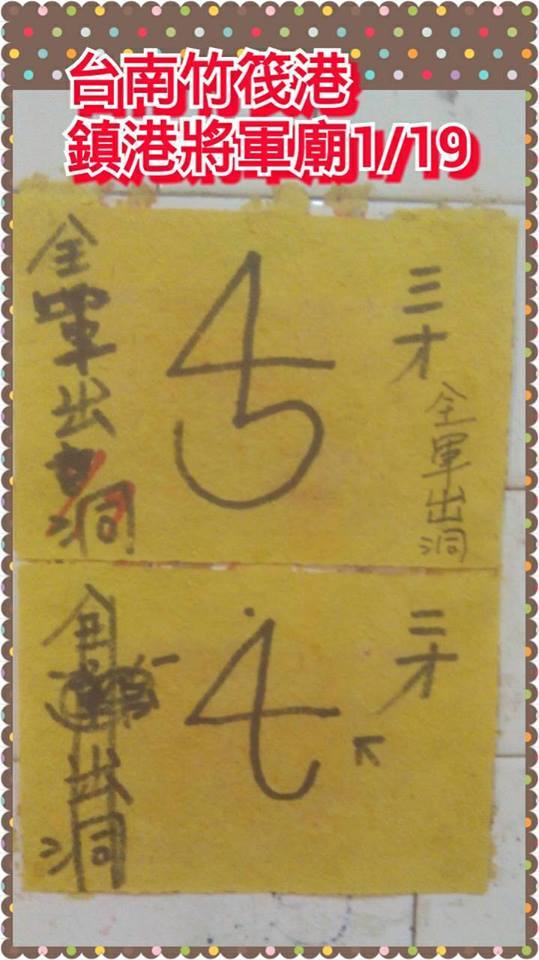 台南竹筏港
鎮港將軍廟1/19
三才
全軍出洞
全軍出洞
三才
出洞